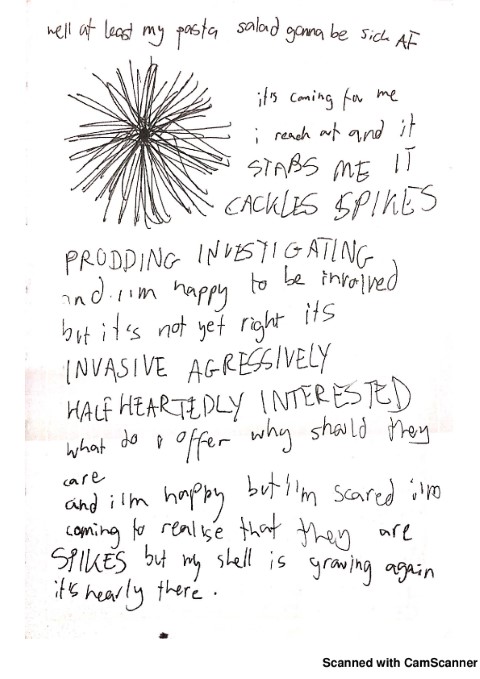 well at least my pasta salad gonna be sick AF
it's coming for me
i reach out and it
STABS ME IT
CACKLES SPIKES
PRODDING INVESTIGATING
and i'm happy to be involved
but it's not yet right its
INVASIVE AGRESSIVELY
HALF HEARTEDLY INTERESTED
what do i offer why should they
care
and i'm happy but i'm scared i'm
coming to realise that they are
SPIKES but my shell is growing again
it's nearly there.
Scanned with CamScanner